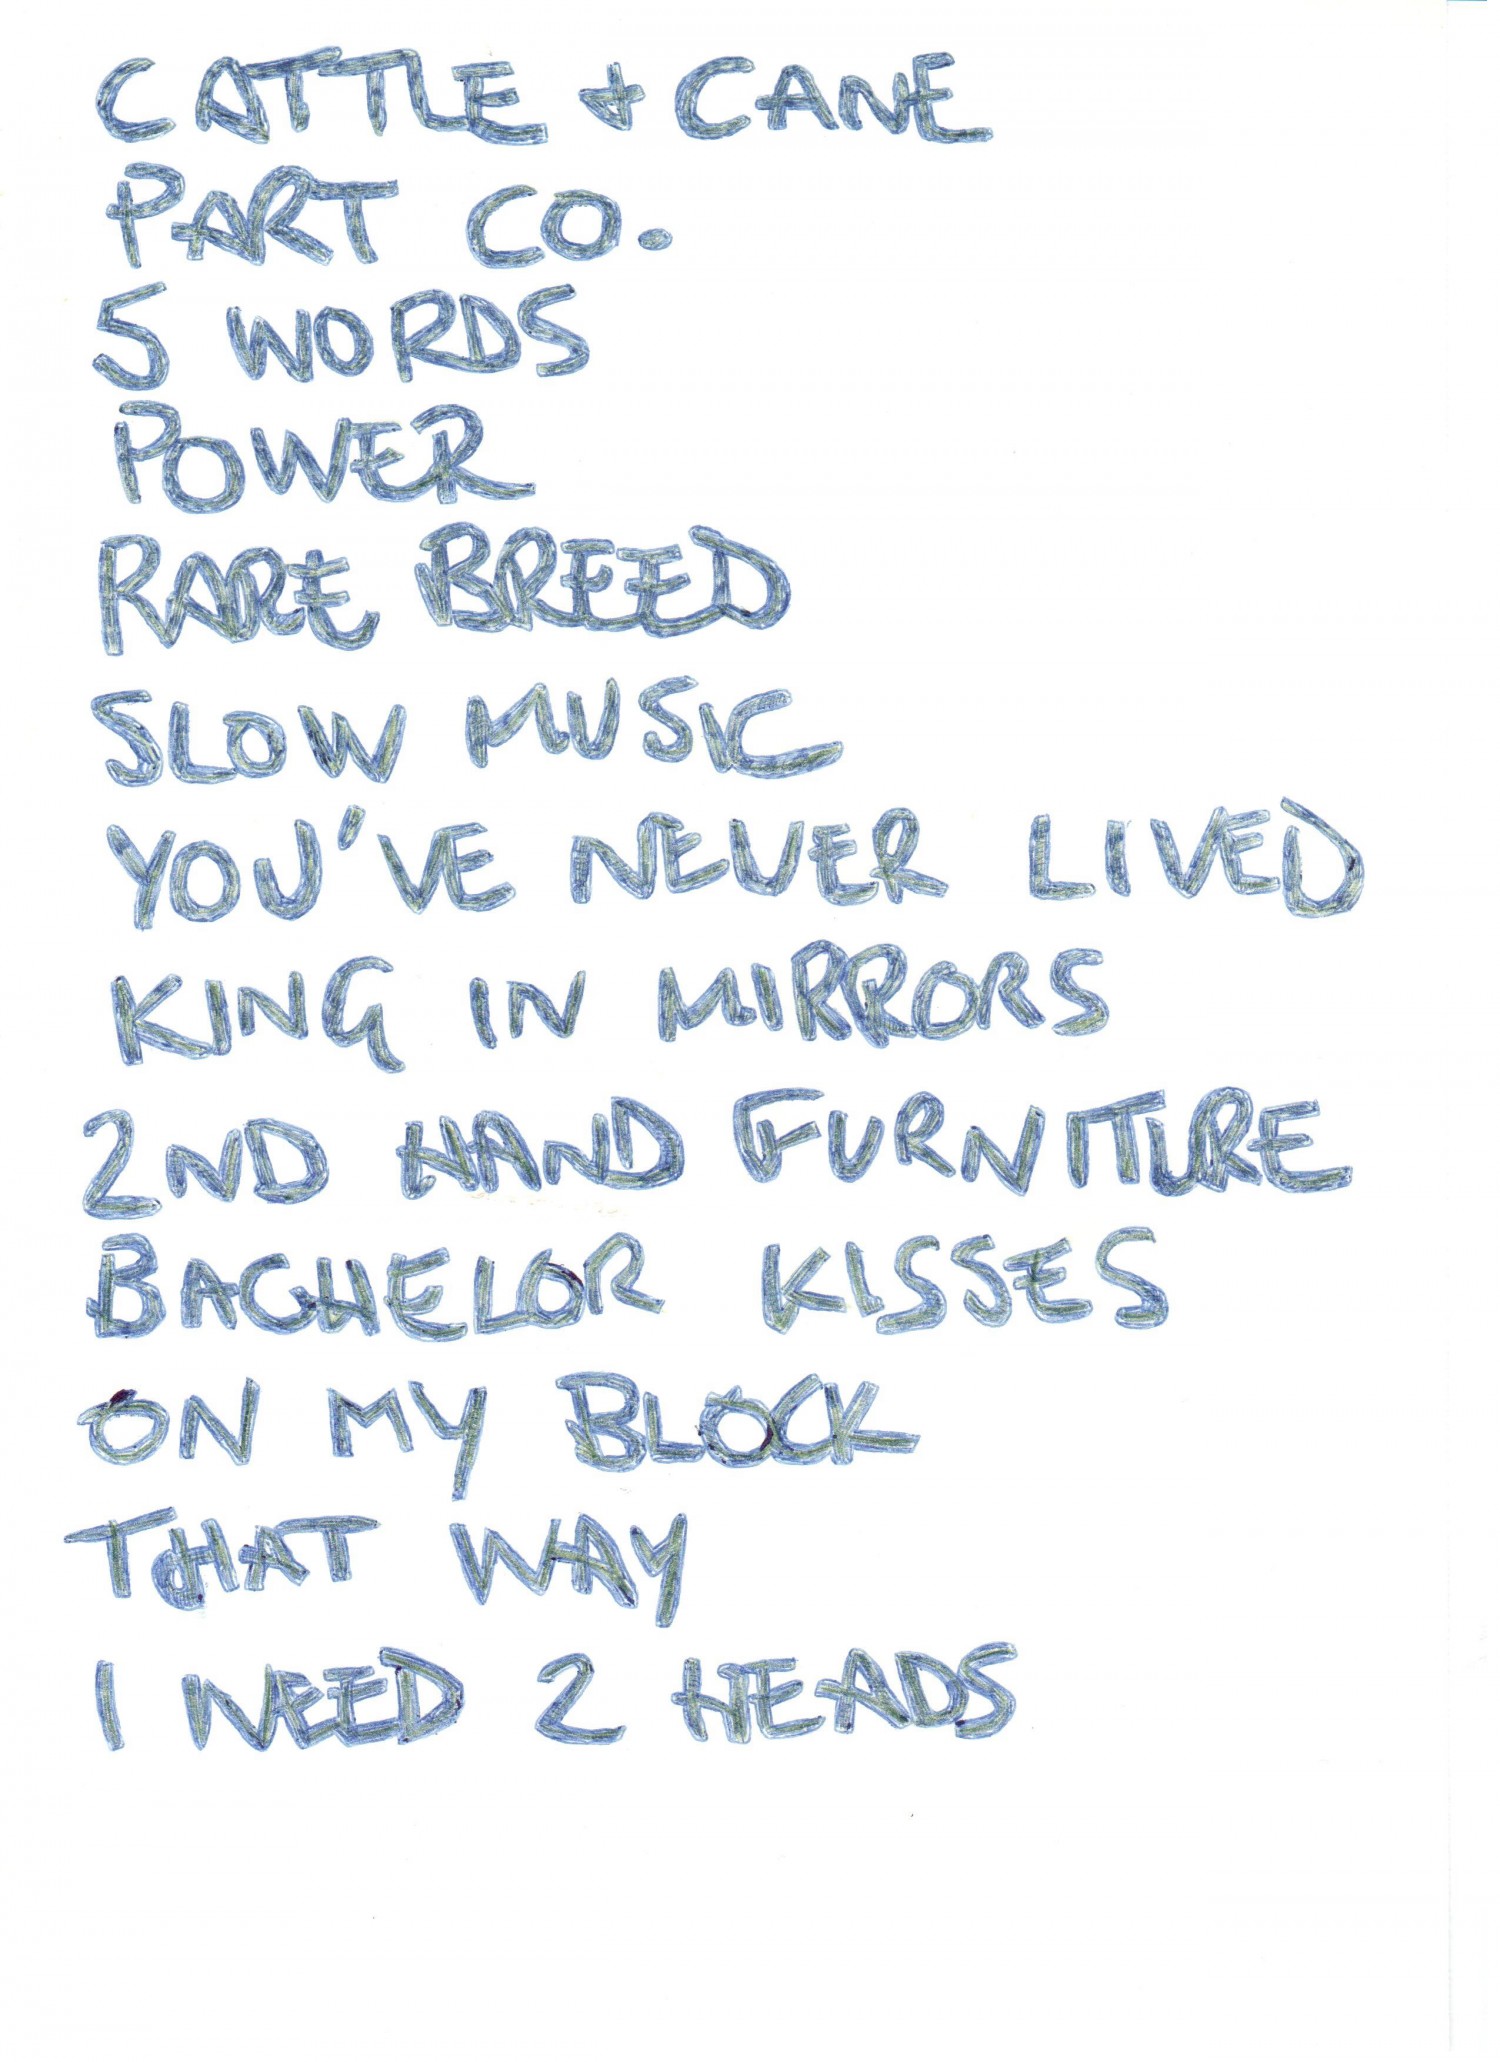 CATTLE + CANE
PART CO.
5 WORDS
POWER
RARE BREED
SLOW MUSIC
YOU'VE NEVER LIVED
KING IN MIRRORS
2ND HAND FURNITURE
BACHELOR KISSES
ON MY BLOCK
THAT WAY
I NEED 2 HEADS